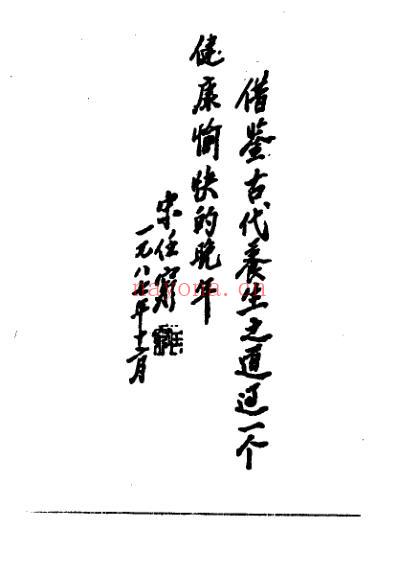 借鉴古代养生之道过一个
健康愉快的晚年
宋任穷
一九八七年十二月
nayona.cn